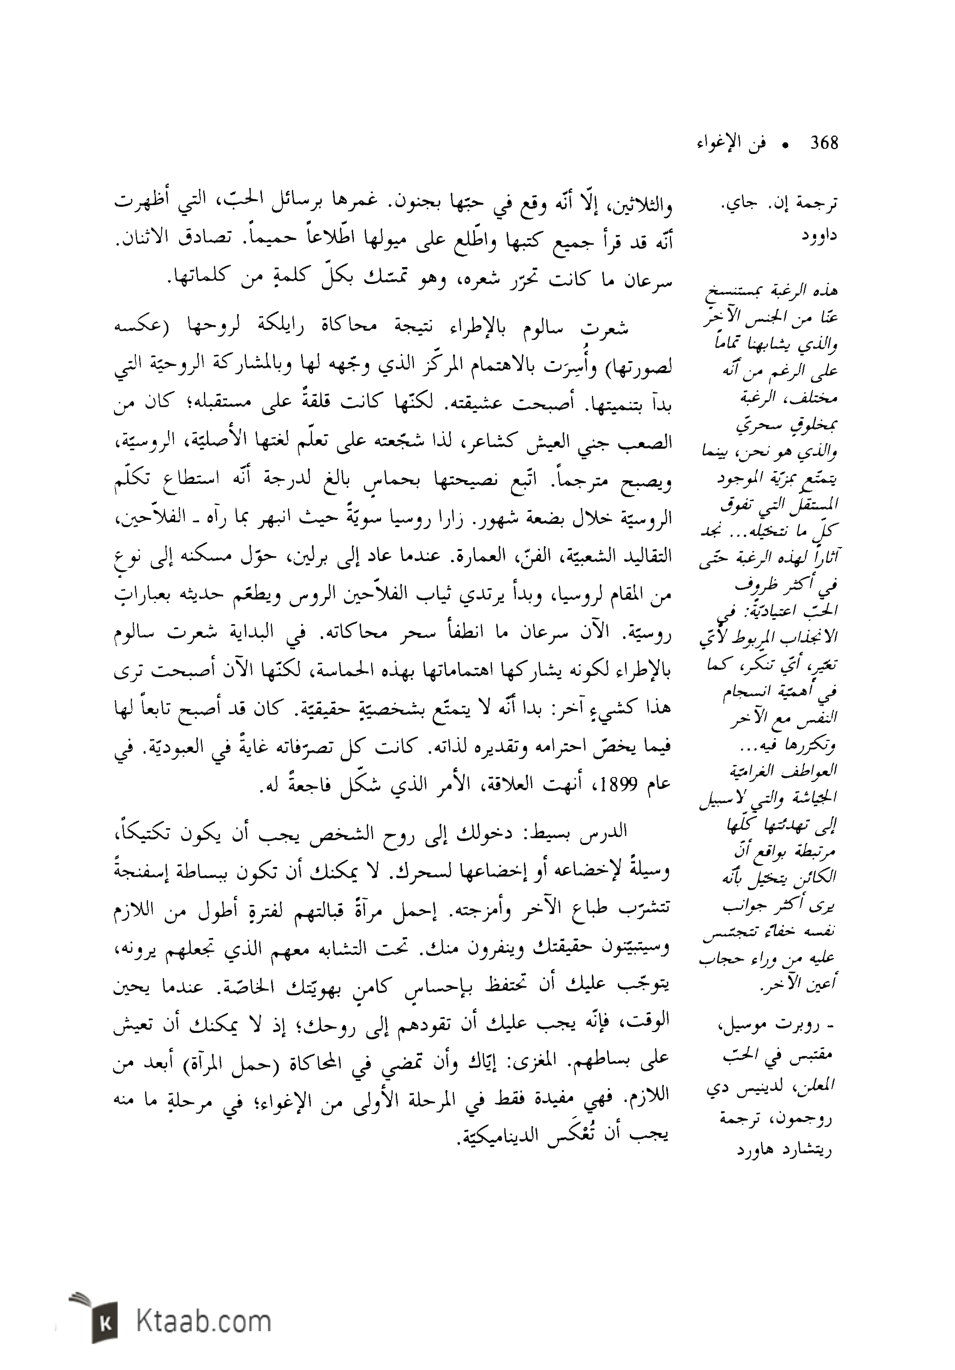 368 • فن الإغواء
والثلاثين، إلّا أنّه وقع في حبّها بجنون. غمرها برسائل الحبّ، التي أظهرت
أنّه قد قرأ جميع كتبها واطّلع على ميولها اطّلاعاً حميماً. تصادق الاثنان.
سرعان ما كانت تحرّر شعره، وهو تمسّك بكلّ كلمةٍ من كلماتها.
شعرت سالوم بالإطراء نتيجة محاكاة رايلكة لروحها (عكسه
لصورتها) وأُسِرَت بالاهتمام المركّز الذي وجّهه لها وبالمشاركة الروحيّة التي
بدآ بتنميتها. أصبحت عشيقته. لكنّها كانت قلقةً على مستقبله؛ كان من
الصعب جني العيش كشاعر، لذا شجّعته على تعلّم لغتها الأصليّة، الروسيّة،
ويصبح مترجماً. اتّبع نصيحتها بحماسٍ بالغ لدرجة أنّه استطاع تكلّم
الروسيّة خلال بضعة شهور. زارا روسيا سويّةً حيث انبهر بما رآه ـ الفلاّحين،
التقاليد الشعبيّة، الفنّ، العمارة. عندما عاد إلى برلين، حوّل مسكنه إلى نوعٍ
من المقام لروسيا، وبدأ يرتدي ثياب الفلاّحين الروس ويطعّم حديثه بعباراتٍ
روسيّة. الآن سرعان ما انطفأ سحر محاكاته. في البداية شعرت سالوم
بالإطراء لكونه يشاركها اهتماماتها بهذه الحماسة، لكنّها الآن أصبحت ترى
هذا كشيءٍ آخر: بدا أنّه لا يتمتّع بشخصيّةٍ حقيقيّة. كان قد أصبح تابعاً لها
فيما يخصّ احترامه وتقديره لذاته. كانت كل تصرّفاته غايةً في العبوديّة. في
عام 1899، أنهت العلاقة، الأمر الذي شكّل فاجعةً له.
الدرس بسيط: دخولك إلى روح الشخص يجب أن يكون تكتيكاً،
وسيلةً لإخضاعه أو إخضاعها لسحرك. لا يمكنك أن تكون ببساطة إسفنجةً
تتشرّب طباع الآخر وأمزجته. إحمل مرآةً قبالتهم لفترةٍ أطول من اللازم
وسيتبيّنون حقيقتك وينفرون منك. تحت التشابه معهم الذي تجعلهم يرونه،
يتوجّب عليك أن تحتفظ بإحساسٍ كامنٍ بهويّتك الخاصّة. عندما يحين
الوقت، فإنّه يجب عليك أن تقودهم إلى روحك؛ إذ لا يمكنك أن تعيش
على بساطهم. المغزى: إيّاك وأن تمضي في المحاكاة (حمل المرآة) أبعد من
اللازم. فهي مفيدة فقط في المرحلة الأولى من الإغواء؛ في مرحلةٍ ما منه
يجب أن تُعْكَس الديناميكيّة.
ترجمة إن. جاي.
داوود
هذه الرغبة بمستنسخ
عنّا من الجنس الآخر
والذي يشابهنا تماماً
على الرغم من أنّه
مختلف، الرغبة
بمخلوقٍ سحريّ
والذي هو نحن، بينما
يتمتّع بمزيّة الموجود
المستقلّ التي تفوق
كلّ ما نتخيّله... نجد
آثاراً لهذه الرغبة حتّى
في أكثر ظروف
الحبّ اعتياديّةً: في
الانجذاب المربوط لأيّ
تغيّرٍ، أيّ تنكّر، كما
في أهميّة انسجام
النفس مع الآخر
وتكررها فيه...
العواطف الغراميّة
الجيّاشة والتي لاسبيل
إلى تهدئتها كلّها
مرتبطة بواقع أنّ
الكائن يتخيّل بأنّه
يرى أكثر جوانب
نفسه خفاءً تتجسّس
عليه من وراء حجاب
أعين الآخر.
ـ روبرت موسيل،
مقتبس في الحبّ
المعلن، لدينيس دي
روجمون، ترجمة
ريتشارد هاورد
Ktaab.com